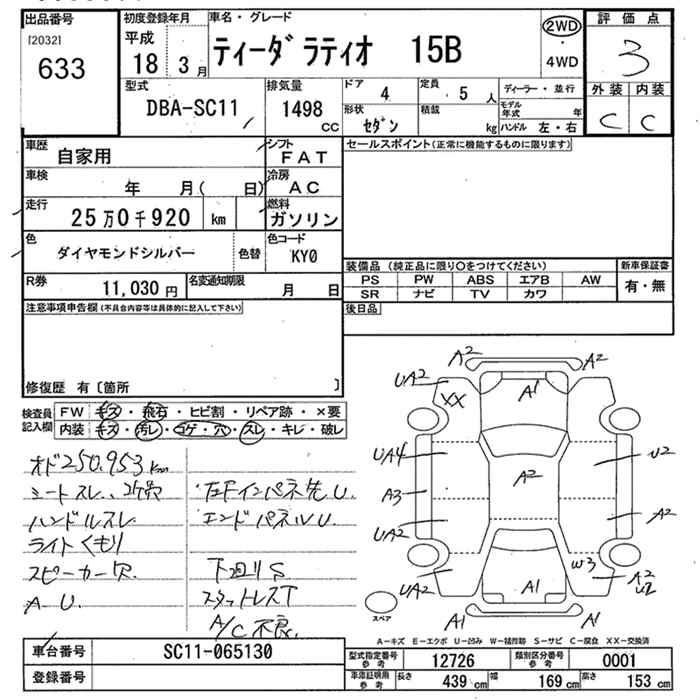 出品番号
[2032]
633
初度登録年月
平成
18 3 月
車名・グレード
ティーダ ラティオ 15B
2WD
・
4WD
評価点
3
外装 内装
C C
型式
DBA-SC11
排気量
1498
CC
ドア
4
定員
5 人
形状
セダン
積載
kg
ディーラー・並行
モデル年式 年
ハンドル 左・右
車歴
自家用
シフト
FAT
車検
年 月( 日)
冷房
AC
走行
25万0千920 km
燃料
ガソリン
色
ダイヤモンドシルバー
色替
色コード
KY0
R券
11,030 円
名変通知期限
月 日
セールスポイント(正常に機能するものに限ります)
装備品 (純正品に限り○をつけてください)
PS PW ABS エアB AW
SR ナビ TV カワ
新車保証書
有・無
後日品
注意事項申告欄(不具合内容等は具体的に記入して下さい)
修復歴 有〔箇所 〕
検査員
記入欄
FW キズ・飛石・ヒビ割・リペア跡・×要
内装 キズ・汚レ・コゲ・穴・スレ・キレ・破レ
オド250,953km
シートスレ、コゲ穴
ハンドルスレ
ライトくもり
スピーカー欠
A-U.
左Fインパネ先U.
エンドパネルU.
下廻りS
スタットレスT
A/C不良
A2 A2
UA2 XX A1
UA4 A2 U2
A3
UA2 A2
W3
UA2 A1 A2
U2
A1 A1
スペア
A-キズ E-エクボ U-凹み W-補修跡 S-サビ C-腐食 XX-交換済
車台番号
SC11-065130
登録番号
型式指定番号
参考
12726
類別区分番号
参考
0001
車庫証明用
参考
長さ
439 cm
幅
169 cm
高さ
153 cm